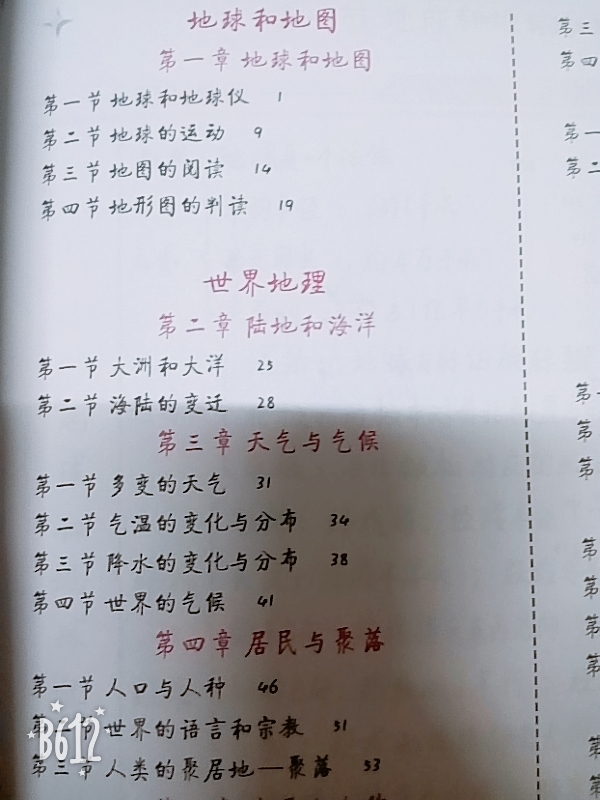 地球和地图
第一章 地球和地图
第一节 地球和地球仪 1
第二节 地球的运动 9
第三节 地图的阅读 14
第四节 地形图的判读 19
世界地理
第二章 陆地和海洋
第一节 大洲和大洋 25
第二节 海陆的变迁 28
第三章 天气与气候
第一节 多变的天气 31
第二节 气温的变化与分布 34
第三节 降水的变化与分布 38
第四节 世界的气候 41
第四章 居民与聚落
第一节 人口与人种 46
第二节 世界的语言和宗教 51
第三节 人类的聚居地—聚落 53
B612
第三
第四
第一
第二
第一
第二
第三
第一
第二
第三
第二